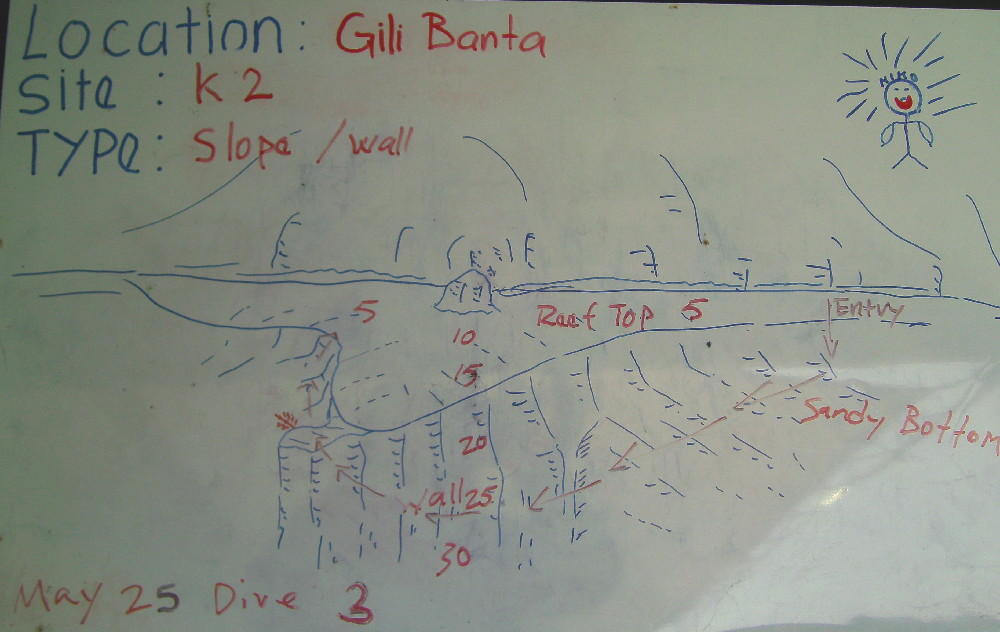 Location: Gili Banta
Site : K2
TYPe: Slope / wall
MIKO
5
Reef Top 5
Entry
10
15
Sandy Bottom
20
all 25
30
May 25 Dive 3